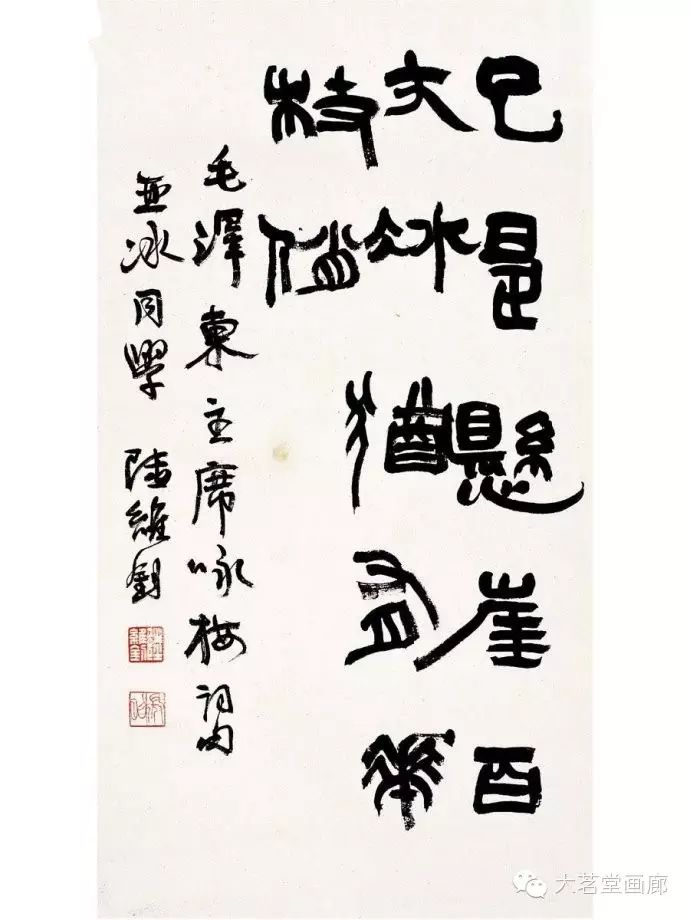 已是懸崖百
丈冰猶有華
枝俏
毛澤東主席咏梅詞句
亞冰同學 陸維釗
大茗堂画廊